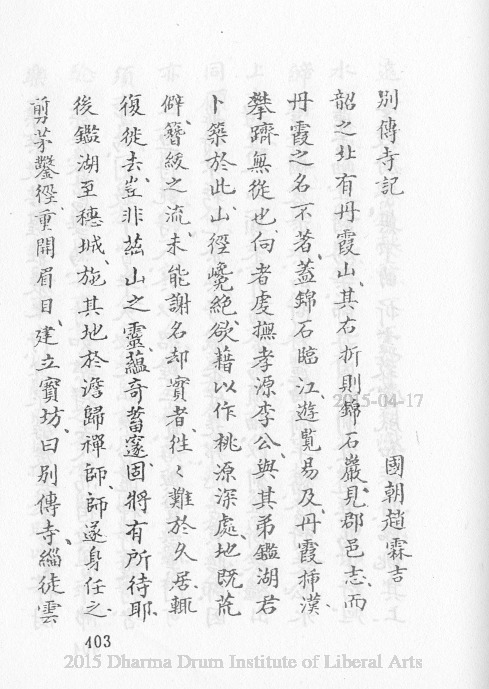 別傳寺記
國朝趙霖吉
韶之北有丹霞山、其右折則錦石巖、見郡邑志、而
丹霞之名不著、蓋錦石臨江遊覧易及、丹霞揷漢、
攀躋無從也、向者虔撫孝源李公、與其弟鑑湖君
卜築於此、山徑巉絶、欲藉以作桃源深處、地既荒
僻、簪紱之流、未能謝名却實者、徃々難於久居、輒
復徙去、豈非茲山之靈蘊奇蓄邃、固將有所待耶、
後鑑湖至穗城、施其地於澹歸禪師、師遂身任之、
剪茅鑿徑、重開眉目、建立寳坊、曰別傳寺、緇徒雲
403
2015-04-17
2015 Dharma Drum Institute of Liberal Arts